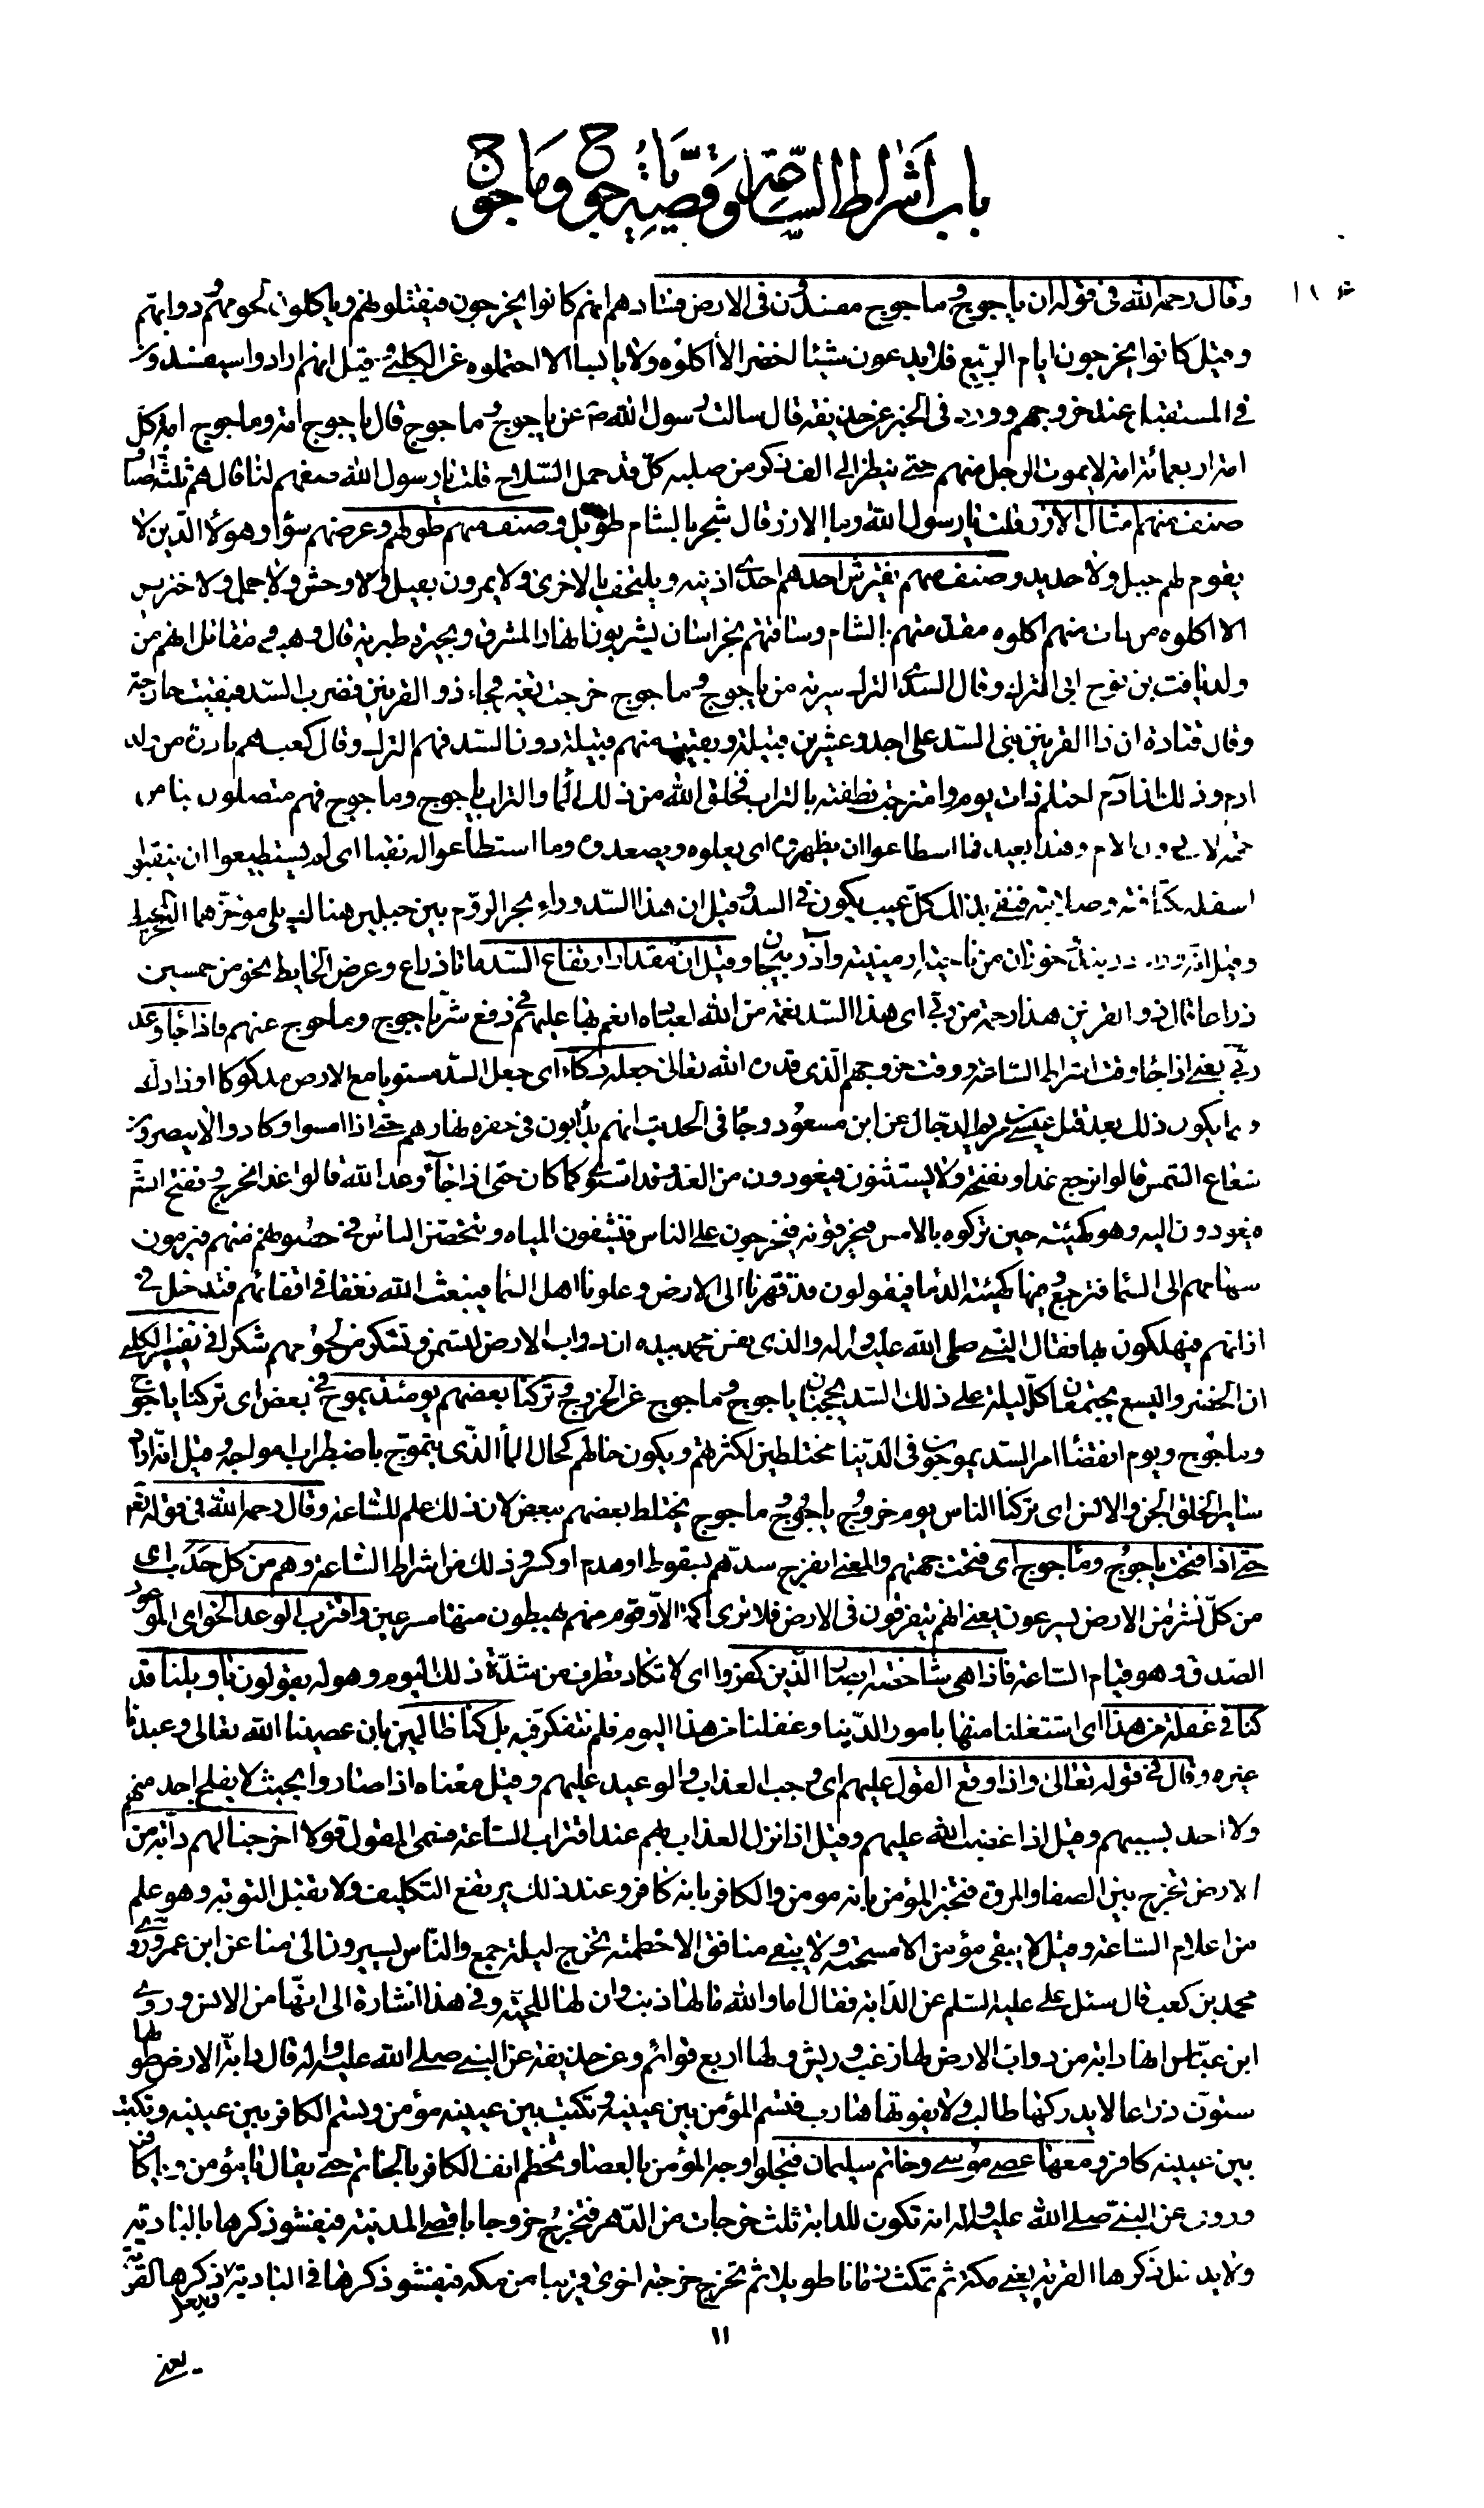 باب أشراط الساعة وقصة يأجوج ومأجوج
وقال رحمه الله فى قوله ان ياجوج وماجوج مفسدون فى الارض فسادهم انهم كانوا يخرجون فيقتلونهم وياكلون لحومهم ودوابهم
وقيل كانوا يخرجون ايام الربيع فلا يدعون شيئا اخضر الا اكلوه ولا يابسا الا احتملوه عن الكلبى وقيل انهم ارادوا سيفسدون
فى المستقبل عند خروجهم وورد فى الخبر عن حذيفة قال سالت رسول الله ص عن ياجوج وماجوج قال ياجوج امة وماجوج امة كل
امة اربعمائة امة لا يموت الرجل منهم حتى ينظر الى الف ذكر من صلبه كل قد حمل السلاح قلت يا رسول الله صفهم لنا قال هم ثلثة اصناف
صنف منهم امثال الارز قلت يا رسول الله وما الارز قال شجر بالشام طويل وصنف منهم طولهم وعرضهم سواء وهولاء الذين لا
يقوم لهم جبل ولا حديد وصنف منهم يفترش احدهم احدى اذنيه ويلتحف بالاخرى ولا يمرون بفيل ولا وحش ولا جمل ولا خنزير
الا اكلوه من مات منهم اكلوه مقدمتهم بالشام وساقتهم بخراسان يشربون انهار المشرق وبحيرة طبرية قال وهب ومقاتل انهم من
ولد يافث بن نوح ابى الترك وقال السدى الترك سرية من ياجوج وماجوج خرجت تغير فجاء ذو القرنين فضرب السد فبقيت خارجة
وقال قتادة ان ذا القرنين بنى السد على احد وعشرين قبيلة وبقيت منهم قبيلة دون السد فهم الترك وقال كعب هم نادرة من ولد
ادم وذلك ان آدم احتلم ذات يوم وامتزجت نطفته بالتراب فخلق الله من ذلك الماء والتراب ياجوج وماجوج فهم متصلون بنا من
جهة الاب دون الام وهذا بعيد فما اسطاعوا ان يظهروه اى يعلوه ويصعدوه وما استطاعوا له نقبا اى لم يستطيعوا ان ينقبوا
اسفله لكثافته وصلابته فنفى بذلك كل عيب يكون فى السد وقيل ان هذا السد وراء بحر الروم بين جبلين هناك يلى موخرهما البحر المحيط
وقيل انه وراء دربند خزران من ناحية ارمينية واذربيجان وقيل ان مقدار ارتفاع السد مائتا ذراع وعرض الحايط نحو من خمسين
ذراعا قال ذو القرنين هذا رحمة من ربى اى هذا السد نعمة من الله لعباده انعم بها عليهم فى دفع شر ياجوج وماجوج عنهم فاذا جاء وعد
ربى يعنى اذا جاء وقت اشراط الساعة ووقت خروجهم الذى قدره الله تعالى جعله دكاء اى جعل السد مستويا مع الارض مدكوكا او ذا دك
وانما يكون ذلك بعد قتل عيسى بن مريم الدجال عن ابن مسعود وجاء فى الحديث انهم يدأبون فى حفره نهارهم حتى اذا امسوا وكادوا لا يبصرون
شعاع الشمس قالوا نرجع غدا ونفتحه ولا يستثنون فيعودون من الغد وقد استوى كما كان حتى اذا جاء وعد الله قالوا غدا نخرج ونفتح انشاء
فيعودون اليه وهو كهيئته حين تركوه بالامس فيخرقونه فيخرجون على الناس فينشفون المياه ويتحصن الناس فى حصونهم منهم فيرمون
سهامهم الى السماء فترجع وفيها كهيئة الدماء فيقولون قد قهرنا اهل الارض وعلونا اهل السماء فيبعث الله نغفا فى اقفائهم فتدخل فى
اذانهم فيهلكون بها فقال النبى صلى الله عليه واله والذى نفس محمد بيده ان دواب الارض لتسمن وتشكر من لحومهم شكرا وفى تفسير الكلبى
ان الخضر واليسع يجتمعان كل ليلة على ذلك السد يحجبان ياجوج وماجوج عن الخروج وتركنا بعضهم يومئذ يموج فى بعض اى تركنا ياجوج
وماجوج ويوم انقضاء امر السد يموجون فى الدنيا مختلطين لكثرتهم ويكون حالهم كحال الماء الذى يتموج باضطراب امواجه وقيل انه اراد
ساير الخلق الجن والانس اى تركنا الناس يوم خروج ياجوج وماجوج يختلط بعضهم ببعض لان ذلك علم للساعة وقال رحمه الله فى قوله تعالى
حتى اذا فتحت ياجوج وماجوج اى فتحت جهتهم والمعنى انفرج سدهم بسقوط او هدم او كسر وذلك من اشراط الساعة وهم من كل حدب اى
من كل نشز من الارض يسرعون يعنى انهم يتفرقون فى الارض فلا ترى اكمة الا وقوم منهم يهبطون منها مسرعين واقترب الوعد الحق اى الموعود
الصدق وهو قيام الساعة فاذا هى شاخصة ابصار الذين كفروا اى لا تكاد تطرف من شدة ذلك اليوم وهوله يقولون يا ويلنا قد
كنا فى غفلة من هذا اى اشتغلنا منها بامور الدنيا وغفلنا من هذا اليوم فلم نتفكر فيه بل كنا ظالمين بان عصينا الله تعالى وعبدنا
غيره وقال فى قوله تعالى واذا وقع القول عليهم اى وجب العذاب والوعيد عليهم وقيل معناه اذا صاروا بحيث لا يفلح احد منهم
ولا احد بسببهم وقيل اذا غضب الله عليهم وقيل اذا نزل العذاب بهم عند اقتراب الساعة فسمى المقول قولا اخرجنا لهم دابة من
الارض تخرج بين الصفا والمروة فتخبر المؤمن بانه مومن والكافر بانه كافر وعند ذلك يرتفع التكليف ولا تقبل التوبة وهو علم
من اعلام الساعة وقيل لا يبقى مؤمن الا مسحته ولا يبقى منافق الا خطمته تخرج ليلة جمع والناس يسيرون الى منا عن ابن عمر وروى
محمد بن كعب قال سئل على عليه السلم عن الدابة فقال اما والله ما لها ذنب وان لها للحية وفى هذا اشارة الى انها من الانس وروى
ابن عباس انها دابة من دواب الارض لها زغب وريش ولها اربع قوائم وعن حذيفة عن النبى صلى الله عليه واله قال دابة الارض طولها
ستون ذراعا لا يدركها طالب ولا يفوتها هارب فتسم المؤمن بين عينيه وتكتب بين عينيه مؤمن وتسم الكافر بين عينيه وتكتب
بين عينيه كافر ومعها عصى موسى وخاتم سليمان فتجلو وجه المؤمن بالعصا وتخطم انف الكافر بالخاتم حتى يقال يا مؤمن ويا كافر
وروى عن النبى صلى الله عليه واله انه تكون للدابة ثلث خرجات من الدهر فتخرج خروجا باقصى المدينة فيفشو ذكرها بالبادية
ولا يدخل ذكرها القرية يعنى مكة ثم تمكث زمانا طويلا ثم تخرج خرجة اخرى قريبا من مكة فيفشو ذكرها فى البادية ويدخل ذكرها القرية
١١
يعنى